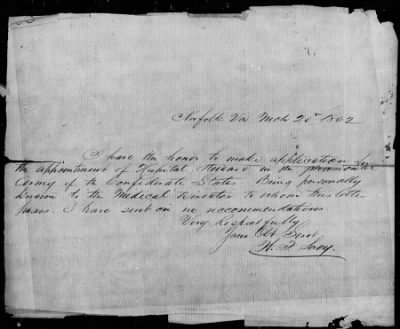 Norfolk Va Mch 20th 1862
I have the honor to make application for
the appointment of Hospital Steward in the
Army of the Confederate States. Being personally
known to the Medical Director to whom this letter
passes. I have sent on no recommendations
Very Respectfully
Your Obt Servt